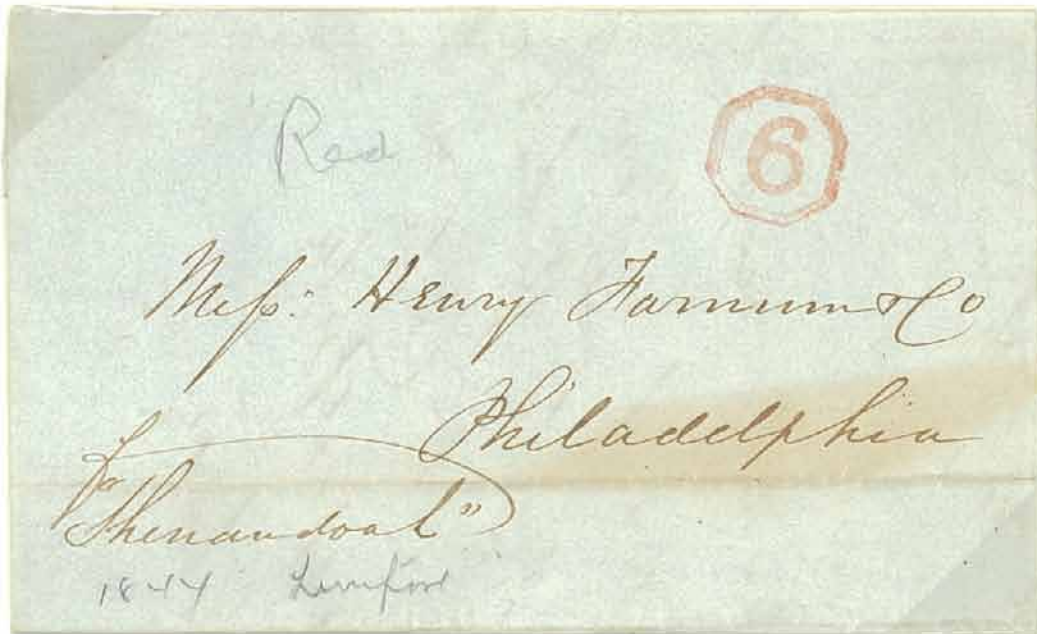 Red
6
Mess: Henry Farnum & Co
Philadelphia
for
Shenandoah"
1844 Liverpool